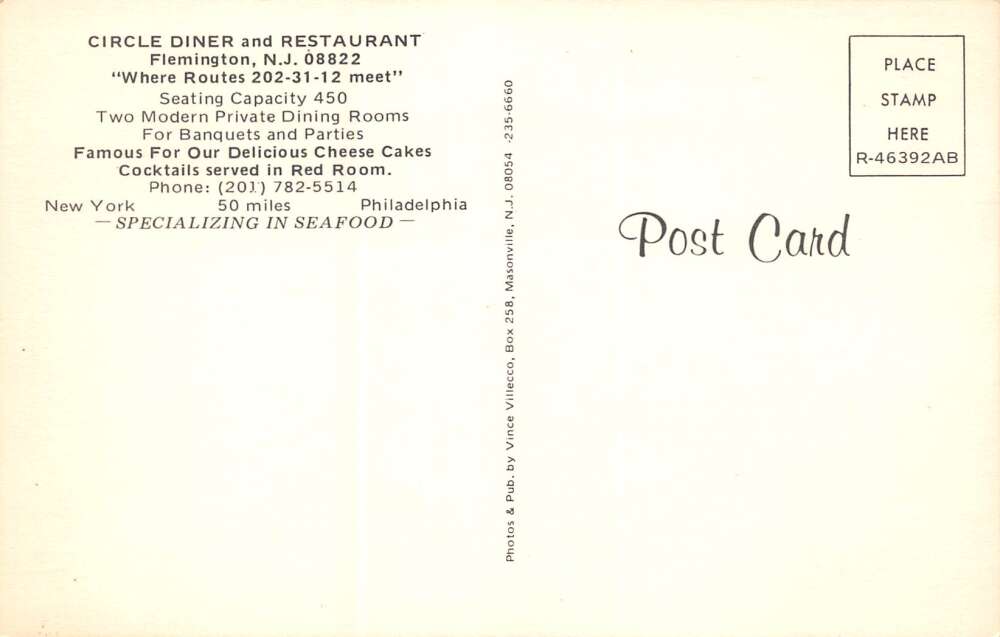 CIRCLE DINER and RESTAURANT
Flemington, N.J. 08822
"Where Routes 202-31-12 meet"
Seating Capacity 450
Two Modern Private Dining Rooms
For Banquets and Parties
Famous For Our Delicious Cheese Cakes
Cocktails served in Red Room.
Phone: (201) 782-5514
New York 50 miles Philadelphia
— SPECIALIZING IN SEAFOOD —
Photos & Pub. by Vince Villecco, Box 258, Masonville, N.J. 08054 -235-6660
PLACE
STAMP
HERE
R-46392AB
Post Card